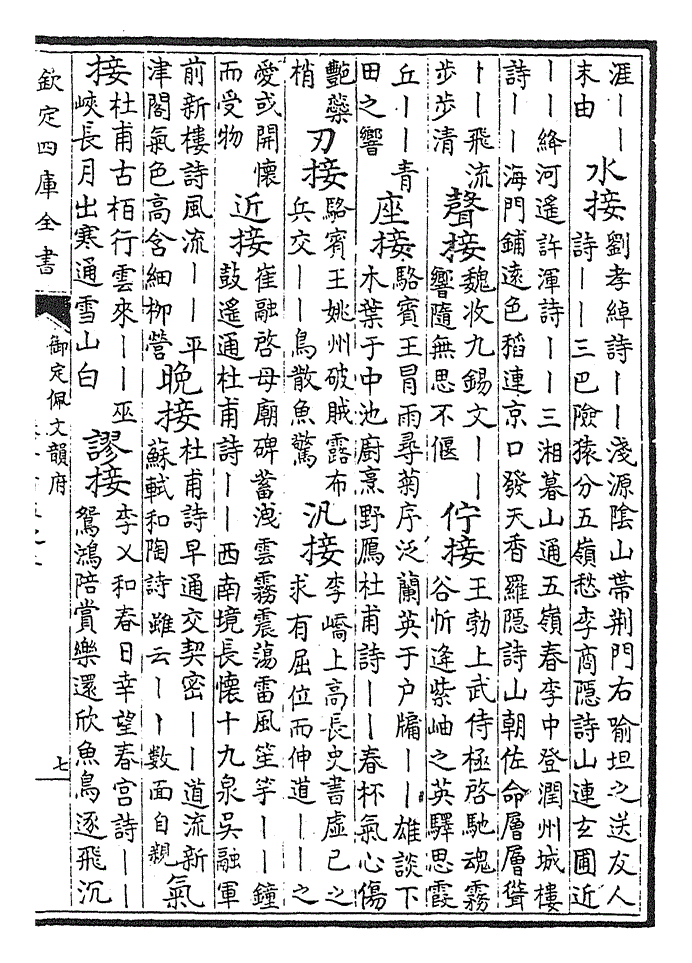 涯｜｜
末由
水接
劉孝綽詩｜｜淺源陰山帶荆門右喻坦之送友人
詩｜｜三巴險猿分五嶺愁李商隱詩山連玄圃近
｜｜絳河遙許渾詩｜｜三湘暮山通五嶺春李中登潤州城樓
詩｜｜海門鋪遠色稻連京口發天香羅隱詩山朝佐命層層聳
｜｜飛流
步步清
聲接
魏收九錫文｜｜
響隨無思不偃
佇接
王勃上武侍極啓馳魂霧
谷忻逢紫岫之英驛思霞
丘｜｜青
田之響
座接
駱賓王冒雨尋菊序泛蘭英于户牖｜｜雄談下
木葉于中池厨烹野鴈杜甫詩｜｜春杯氣心傷
艷蘂
梢
刃接
駱賓王姚州破賊露布
兵交｜｜鳥散魚驚
汎接
李嶠上高長史書虛已之
求有屈位而伸道｜｜之
愛或開懷
而受物
近接
崔融啓母廟碑蓄洩雲霧震蕩雷風笙竽｜｜鐘
鼓遙通杜甫詩｜｜西南境長懷十九泉吳融軍
前新樓詩風流｜｜平
津閣氣色高含細栁營
晩接
杜甫詩早通交契密｜｜道流新
蘇軾和陶詩雖云｜｜数面自親
氣
接
杜甫古栢行雲來｜｜巫
峽長月出寒通雪山白
謬接
李乂和春日幸望春宫詩｜｜
鴛鴻陪賞樂還欣魚鳥逐飛沉
欽定四庫全書
御定佩文韻府
七